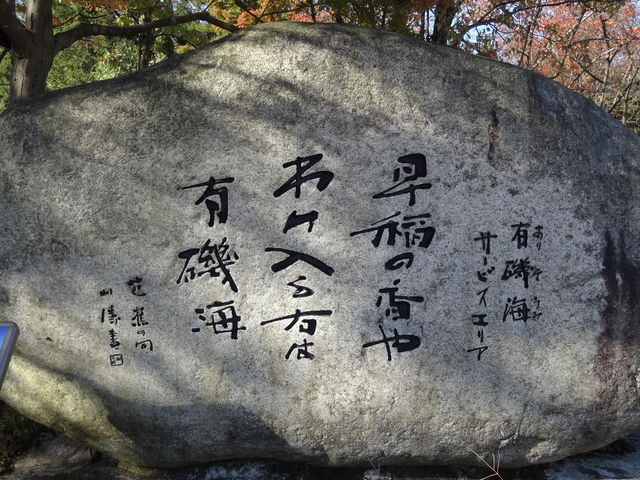 有磯海
ありそうみ
サービスエリア
早稲の香や
わけ入る右は
有磯海
芭蕉の句